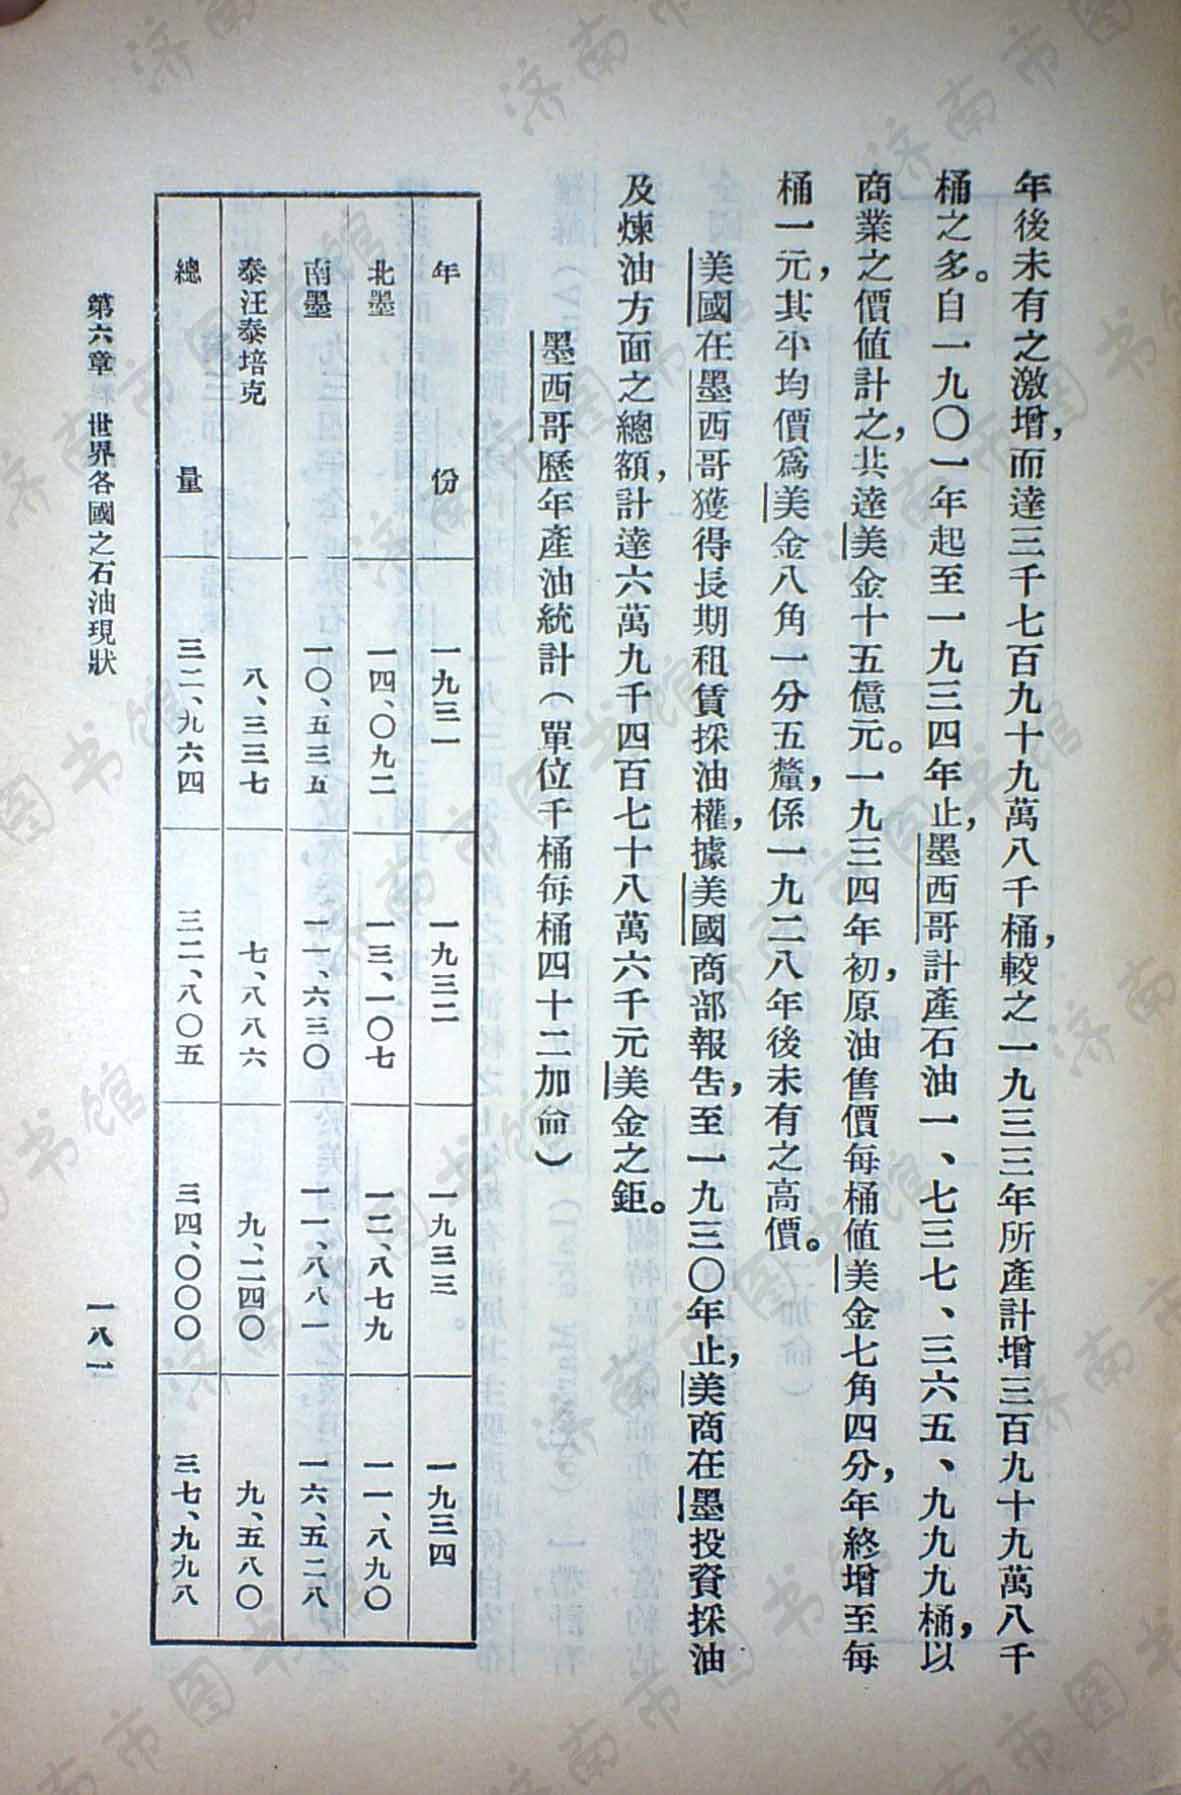 年後未有之激增,而達三千七百九十九萬八千桶,較之一九三三年所產計增三百九十九萬八千
桶之多。自一九〇一年起至一九三四年止,墨西哥計產石油一、七三七、三六五、九九九桶,以
商業之價值計之,共達美金十五億元。一九三四年初,原油售價每桶值美金七角四分,年終增至每
桶一元,其平均價爲美金八角一分五釐,係一九二八年後未有之高價。
美國在墨西哥獲得長期租賃採油權,據美國商部報告,至一九三〇年止,美商在墨投資採油
及煉油方面之總額,計達六萬九千四百七十八萬六千元美金之鉅。
墨西哥歷年產油統計(單位千桶每桶四十二加侖)
年份 一九三一 一九三二 一九三三 一九三四
北墨 一四、〇九二 一三、一〇七 一二、八七九 一一、八九〇
南墨 一〇、五三五 一一、六三〇 一一、八八一 一六、五二八
泰汪泰培克 八、三三七 七、八八六 九、二四〇 九、五八〇
總量 三二、九六四 三二、八〇五 三四、〇〇〇 三七、九九八
第六章 世界各國之石油現狀
一八一
济南市图书馆